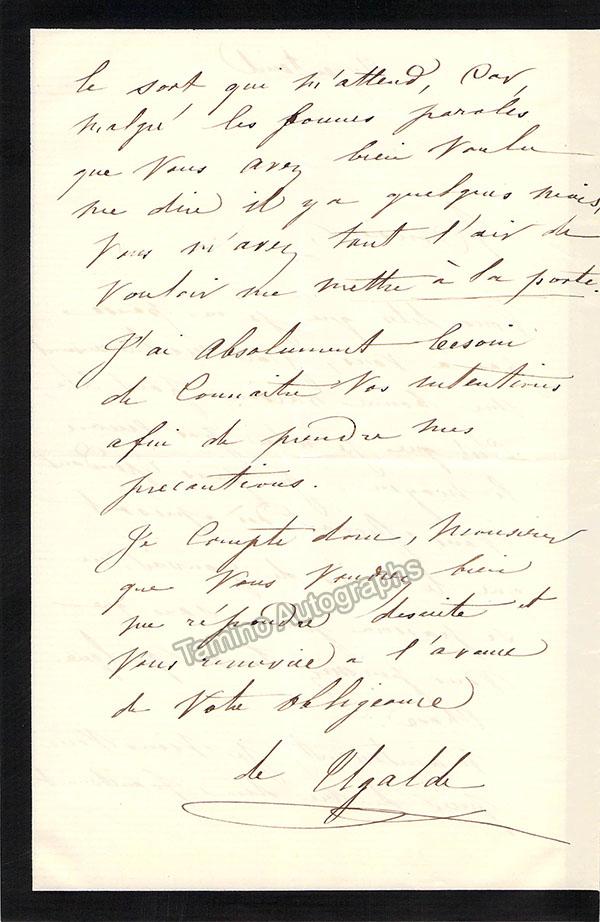 le sort qui m'attend, Car,
malgré les bonnes paroles
que Vous avez bien Voulu
me dire il y a quelques mois,
Vous m'avez tout l'air de
Vouloir me mettre à la porte.
J'ai Absolument besoin
de Connaitre Vos intentions
afin de prendre mes
precautions.
Je Compte donc, Monsieur
que Vous Voudrez bien
me répondre desuite et
Vous remercie a l'avance
de Votre obligeance
de Ugalde
Tamino Autographs